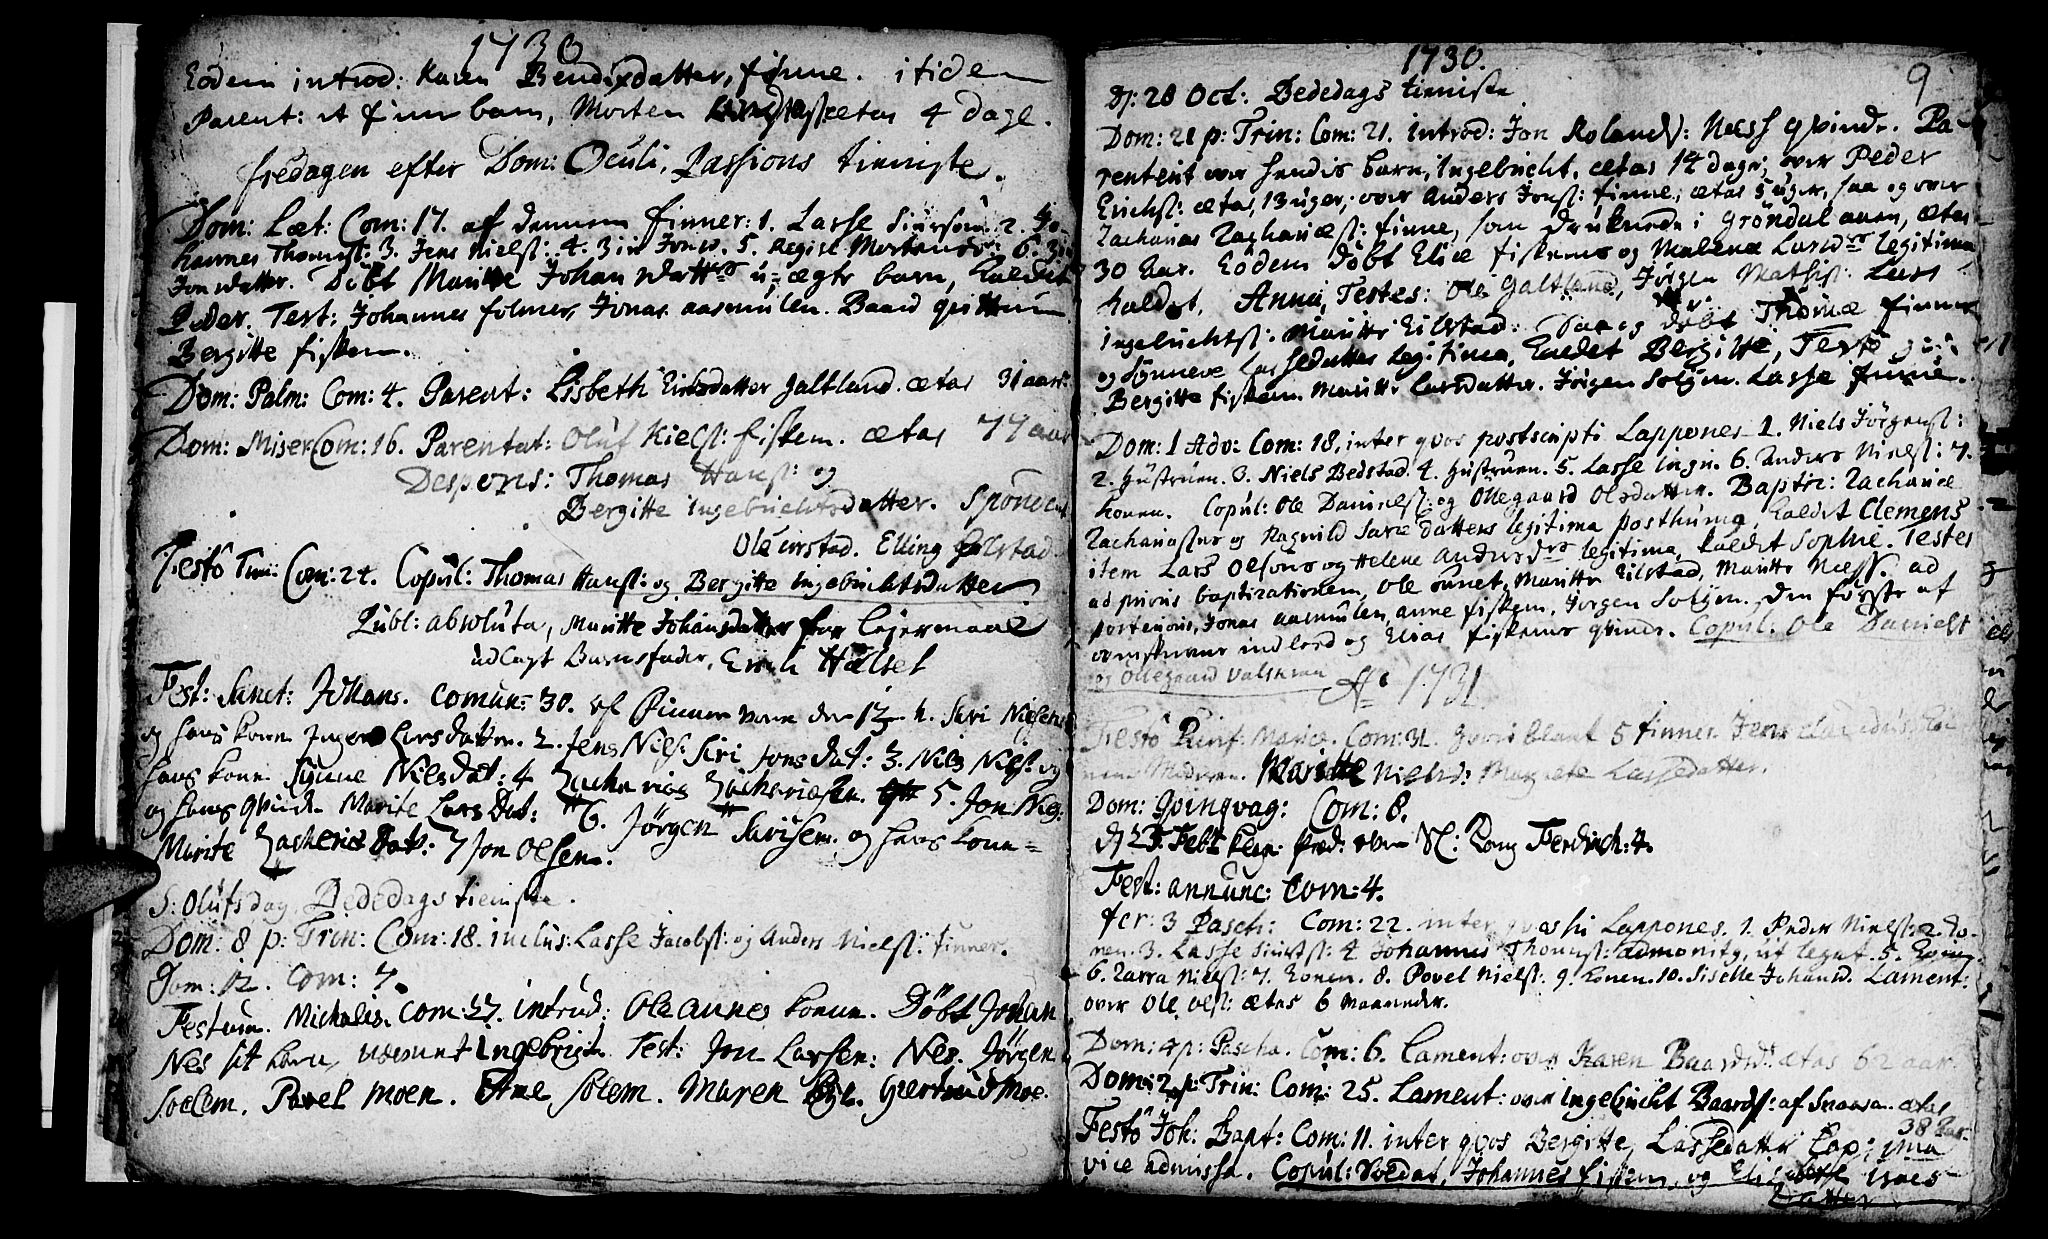 1730
Eodem introd: Karen Bendixdatter, finne. itidem
Parent: et finne barn, Morten ætas 4 dage.
fredagen efter Dom: Oculi, Passions tieniste.
Dom: Læt: Com: 17. af dennem finner: 1. Lasse Siursøn 2. Jo-
hannes Thomesß: 3. Jens Nielsß: 4. Jonsd. 5. Mortensdr 6.
Jonsdatter. Døbt Maritte Johansdattrs u-ægte barn, kaldet
Peder. Test: Johannes folmer, Jonas aasmulen. Baard
Bergitte fiskem.
Dom: Palm: Com: 4. Parent: Lisbeth datter galtland. ætas 31 aar.
Dom: Miser Com: 16. Parentat: Oluf Kielsß: fiskem. ætas 74 aar
Despons: Thomas Hansß: og
Bergitte ingebrichtsdatter. Spond
Ole Elling
Festo Trin: Com: 24. Copul: Thomas Hansß: og Bergitte ingebrichtsdatter
Publ: absoluta, Maritte Johansdatter for lejermaal
udlagt Barnefader, Erich Hælset
Fest: Sanct: Johans. Comun: 30. af finner vare der 12 n. Siri
og hans kone Inger Larsdatter. 2. Jens Nielsß: Siri Jonsdat: 3. Nils Nilsß: og
hans kone Synne Nilsdat: 4 Zacharias Zachariasen. 5. Jon Niels:
og hans qvinde Marite Larsdat: 6. Jørgen Sarisen. og hans kone=
Marite Zacherias dat: 7 Jon Olsen.
S: Olufsdag Bededags tieniste.
Dom: 8 p: Trin: Com: 18. inclus: Lasse Jacobsß: og Anders Nielsß: finner.
Dom: 12. Com: 7.
Festum. Michalis. Com: 27. introd: Ole aunes kone. Døbt Johan
Nes sit barn, Ingebrigt. Test: Jon Larsen: Nes. Jørgen
Soelem. Povel moen. Ane solem. Maren Giertrud moe.
1730.
9
D: 28 Oct: Bededags tieniste
Dom: 21 p: Trin: Com: 21. introd: Jon Rolands: Næss qvinde. Pa-
rentert over hendes barn, Ingebricht, ætas 14 dage, over Peder
Erichsß: ætas, 13 uger, over Anders Jonsß: finne, ætas 5 uger, saa og over
Zacharias Zachariæsß: finne, som druknede i Grøndal aaen, ætas
30 aar. Eodem døbt Eliæ fiskems og Malenæ Larsdrs legitima
kaldet, Anna, Testes: Ole Galtland, Jørgen Mathisß: Lars
ingebrichtsß: Maritte Eilstad. døbt Thomæ finnes
og Synneve Lassedatters legitima, kaldet Bergitte, Teste
Bergitte fiskem Maritte Larsdatter. Jørgen Solem. Lasse finne.
Dom: 1 Adv: Com: 18, inter quos postscripti Lappones. 1. Niels Jörgensß:
2. Hustruen. 3. Niels Bedstad. 4. Hustruen. 5. Lasse 6. Anders Nielsß: 7.
konen. Copul: Ole Danielsß: og Ollegaard Olsdatter. Baptiz: Zachariæ
Zachariassens og Ragnild Saræ datters legitima posthuma, kaldet Clemens
item Lars Olsøns og Helene Andersdrs legitima, kaldet Sophie. Testes
ad prioris baptizationem, Ole Maritte Eilstad, Maritte Næss. ad
posterioris, Jonas aasmulen, anne fiskem, Jørgen Solem. Den første af
indlod og Elias fiskems qvinde. Copul: Ole Danielsß
og Ollegaard
Ao 1731
Festo Purif: Mariæ. Com: 31. hvori blant 5 finner Jens
Maritte Nielsd: Margrete Lassedatter.
Dom: Qvinqvag: Com: 8.
d 23 Febr over Sl: Kong Ferdrich: 4.
Fest: annunc: Com: 4.
fer: 3 Pasch: Com: 22. inter qvos hi Lappones. 1. Peder Nielsß: 2. Ko-
nen. 3. Lasse Siursß: 4 Johannes Thomesß: admonitq, ut legat. 5.
6. Zarra Nielsß: 7. konen. 8. Povel Nielsß: 9. konen. 10. Siselle Johansd. Lament:
over Ole Olsß: ætas 6 maaneder.
Dom: 4 p: Pascha. Com: 6. Lament: over Karen Baardsdr: ætas 62 aar.
Dom: 2 p: Trin: Com: 25. Lament: over Ingebricht Baardsß: af Snaasa. ætas
38 aar.
Festo Joh: Bapt: Com: 11. inter qvos Bergitte Lassedatter Lap: ima
vice admissa. Copul: Johannes fiskem og
datter